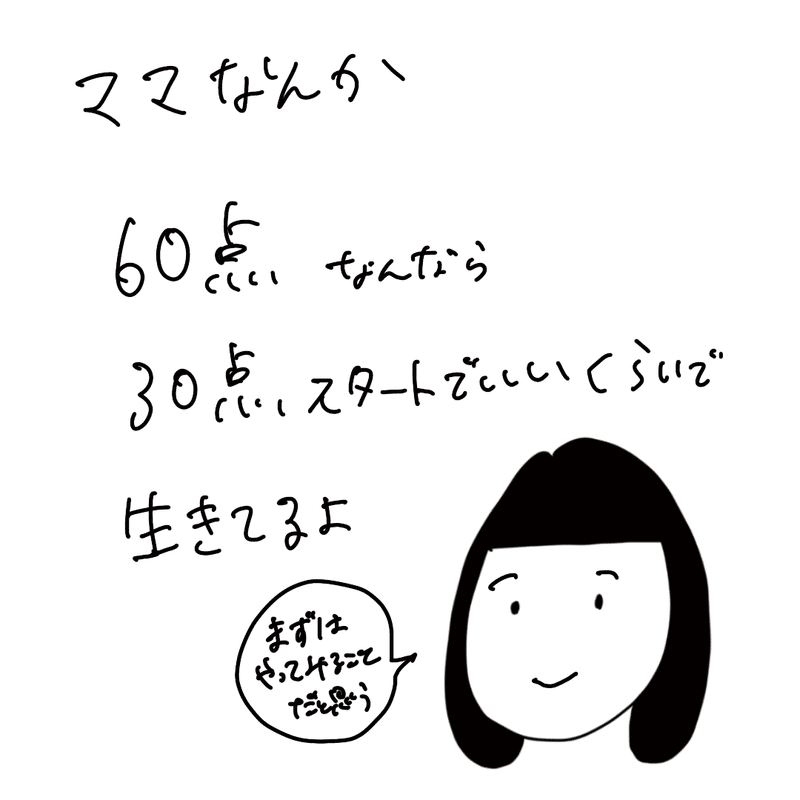 ママなんか
60点 なんなら
30点スタートでいいくらいで
生きてるよ
まずは
やってみること
だと思う